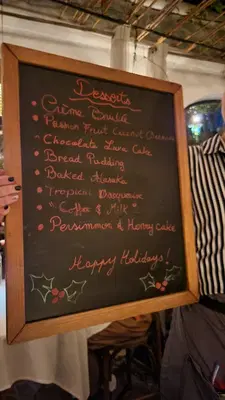 Desserts
• Crème Brulée
• Passion Fruit Coconut
• Chocolate Lava Cake
• Bread Pudding
• Baked Alaska
• Tropical
• "Coffee & Milk"
• Persimmon & Honey Cake
Happy Holidays!